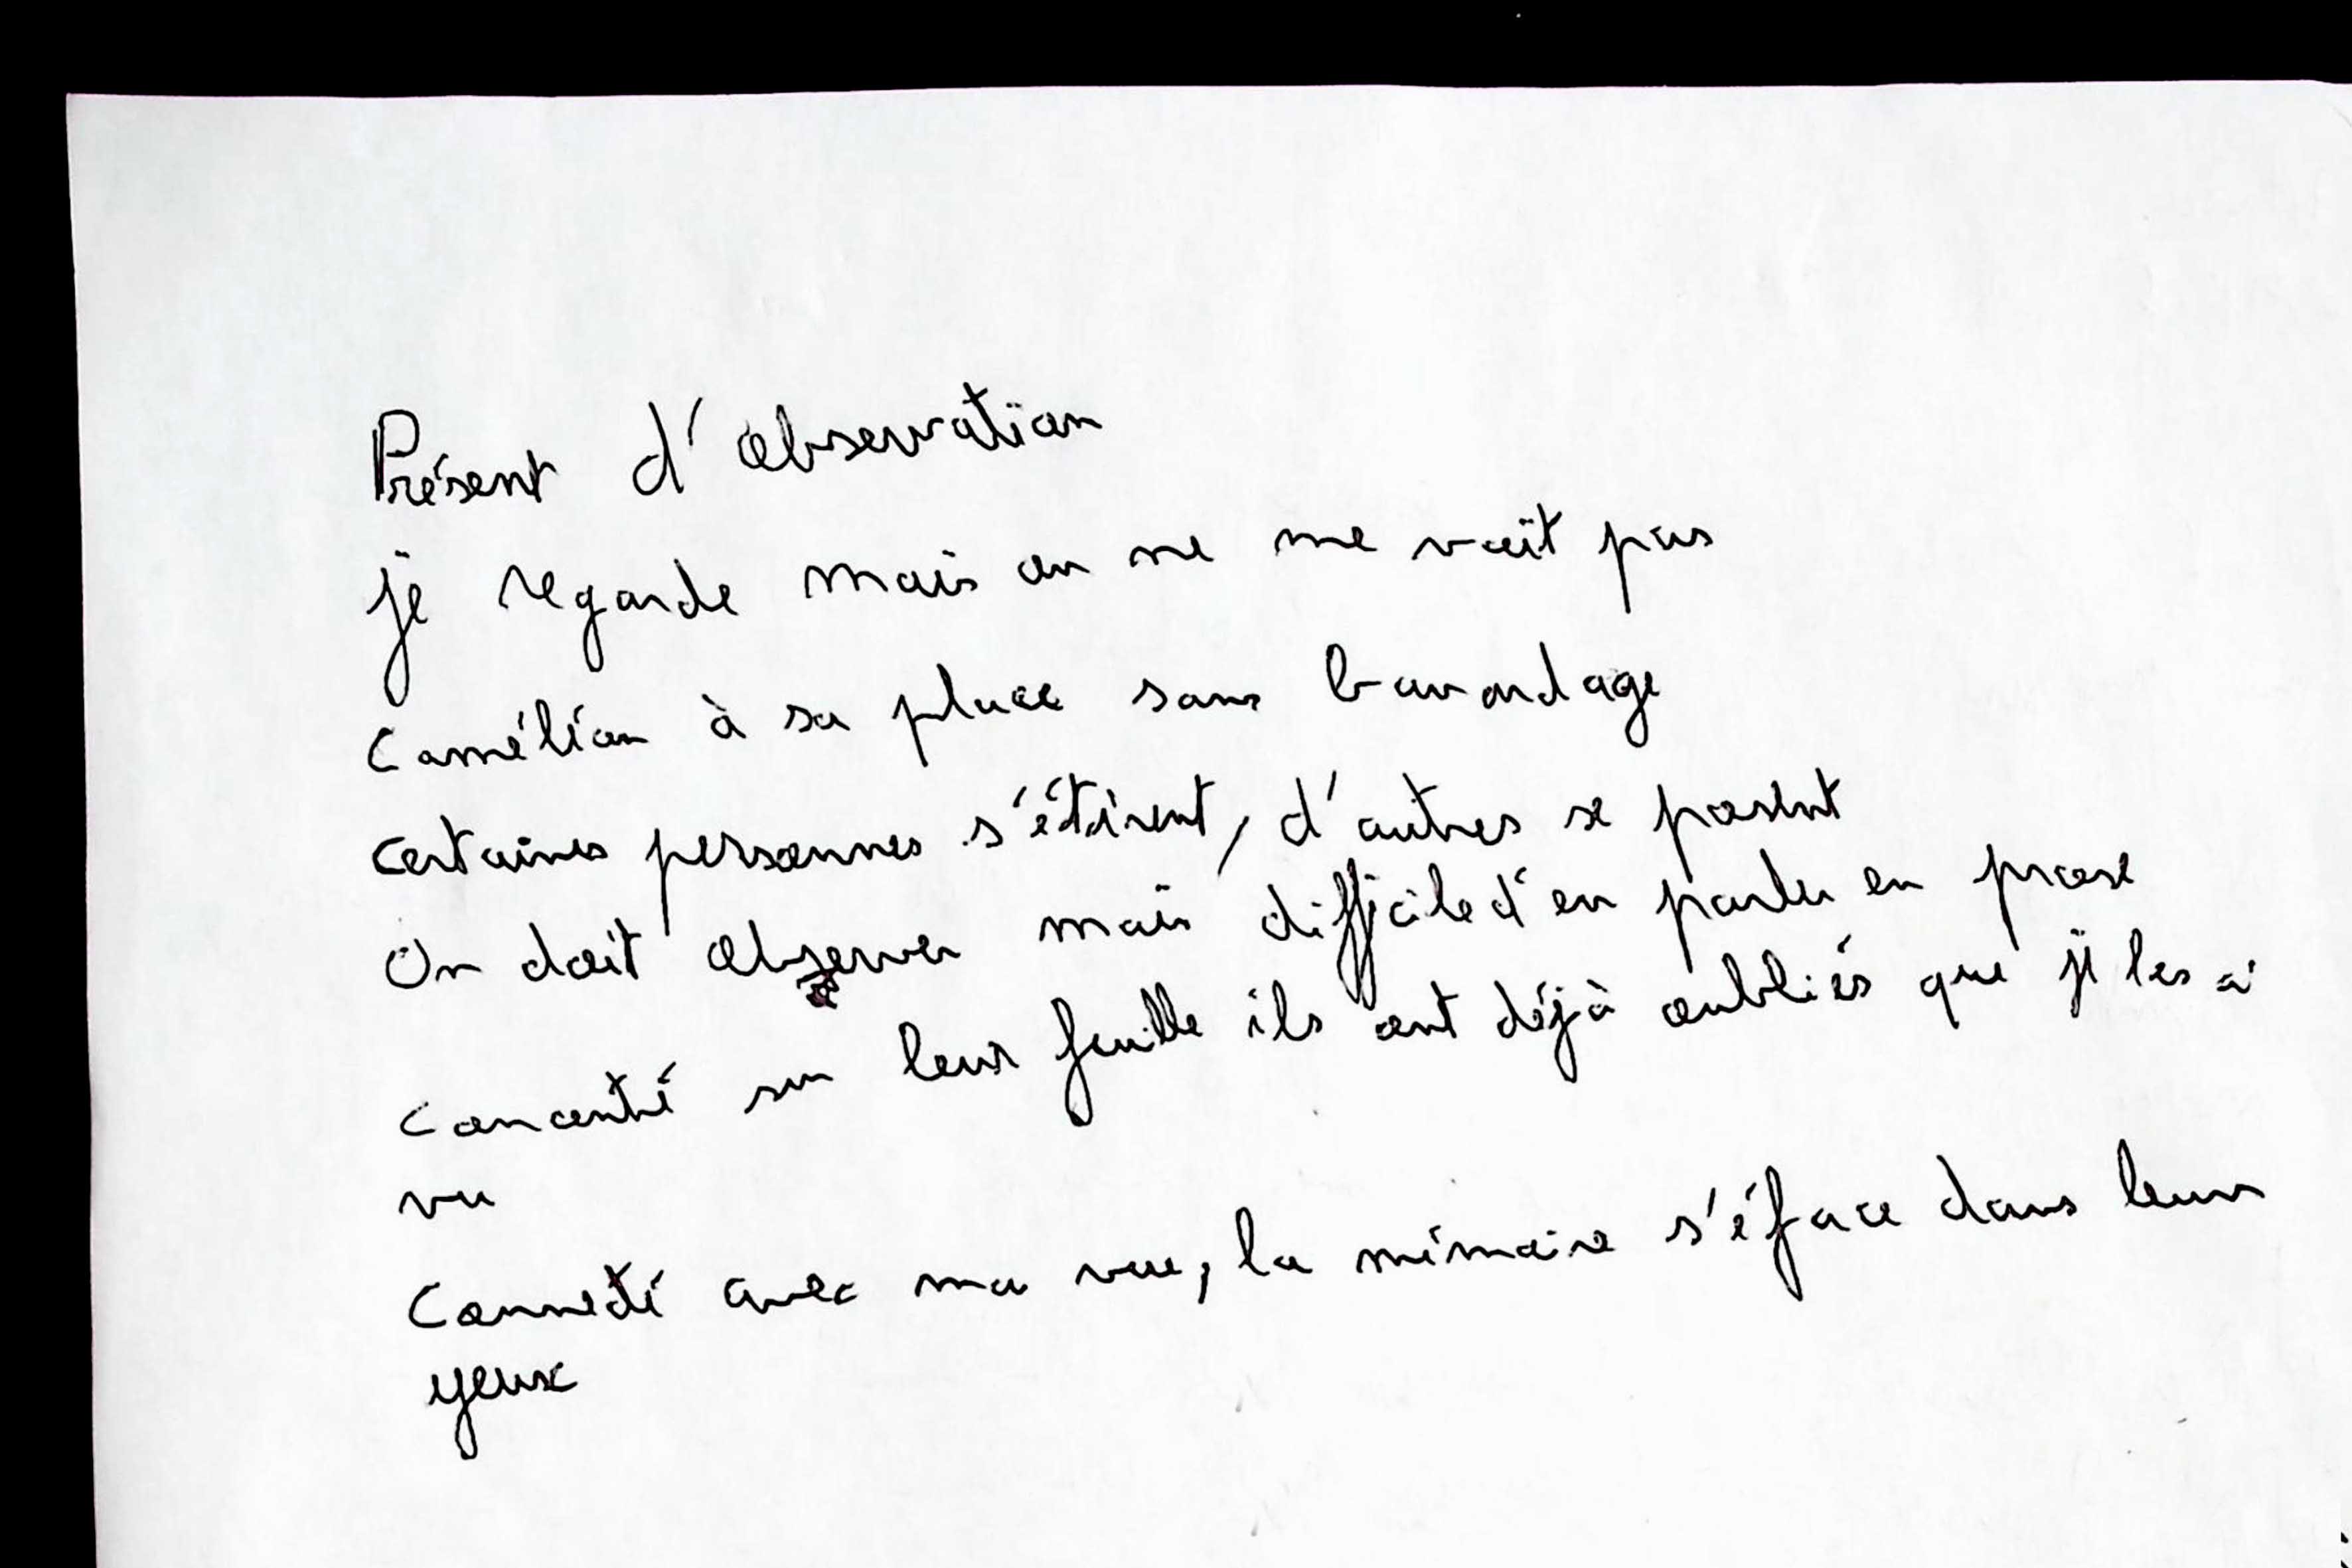 Présent d'observation
je regarde mais on ne me voit pas
Caméléon à sa place sans bavardage
certaines personnes s'étirent, d'autres se posent
On doit observer mais difficile d'en parler en prose
Concentré sur leur feuille ils ont déjà oubliés que je les ai
vu
Connecté avec ma vue, la mémoire s'éface dans leurs
yeux